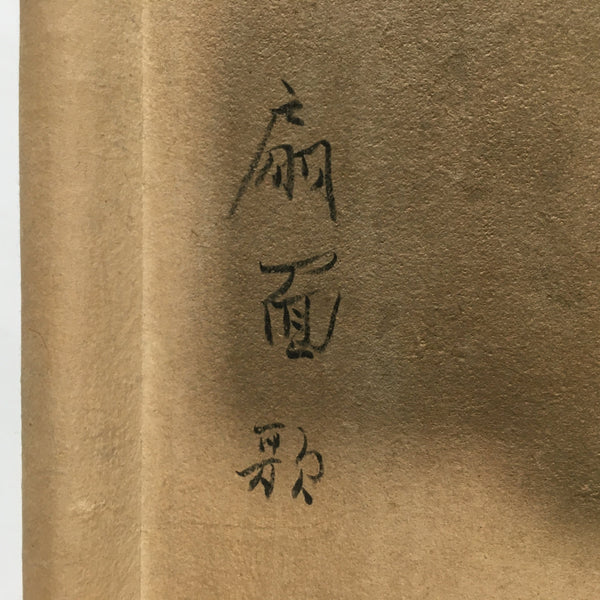 扇面歌